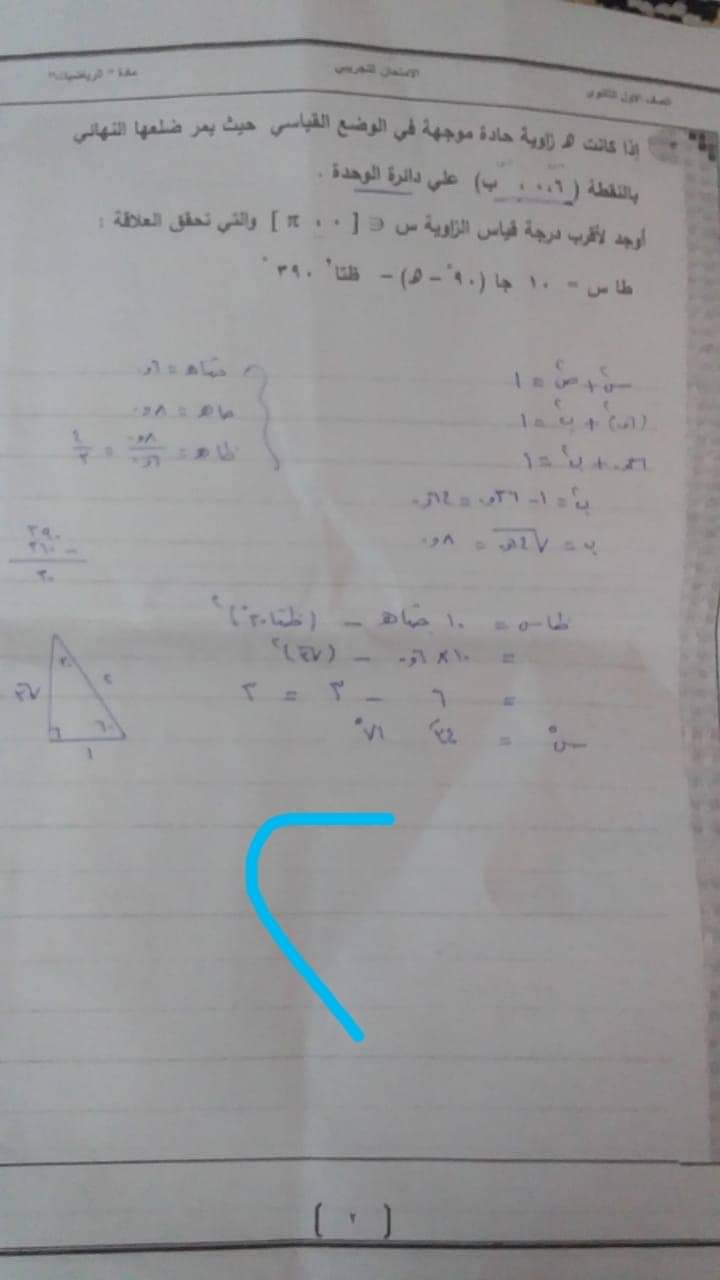 الصف الأول الثانوى الامتحان التجريبي مادة " الرياضيات "
٢ إذا كانت هـ زاوية حادة موجهة في الوضع القياسي حيث يمر ضلعها النهائي
بالنقطة ( ٠.٦ ، ب) علي دائرة الوحدة .
أوجد لأقرب درجة قياس الزاوية س ∋ [ ٠ ، π ] والتي تحقق العلاقة :
طا س = ١٠ جا (٩٠° – هـ) – ظتا² ٣٩٠°
س² + ص² = ١
(٠٫٦)² + ب² = ١
٠٫٣٦ + ب² = ١
ب² = ١ - ٠٫٣٦ = ٠٫٦٤
ب = √٠٫٦٤ = ٠٫٨
حتاهـ = ٠٫٦
حاهـ = ٠٫٨
ظاهـ = ٠٫٨/٠٫٦ = ٤/٣
٣٩٠
٣٦٠ -
٣٠
ظاس = ١٠ حتاهـ - (ظتا٣٠°)²
= ١٠ × ٠٫٦ - (√٣)²
= ٦ - ٣ = ٣
س° = ٣٤ ٧١°
٣٠
٢
√٣
٦٠
١
[ ٢ ]